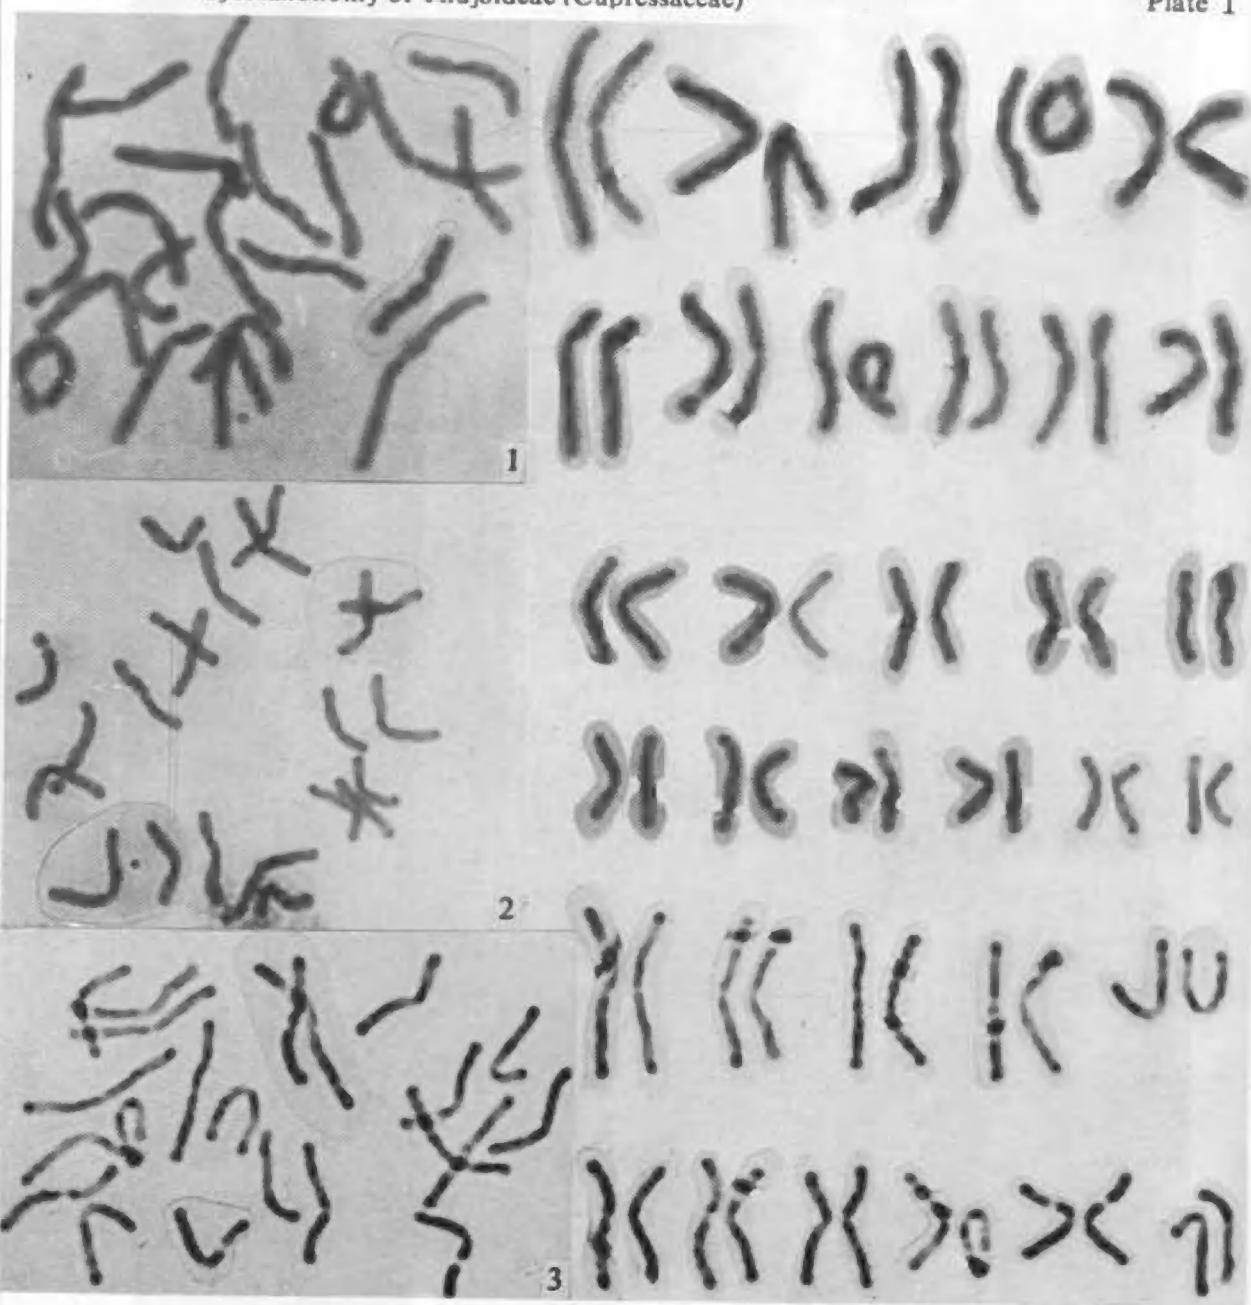 of Thujoideae (Cupressaceae)
Plate 1
1
2
3